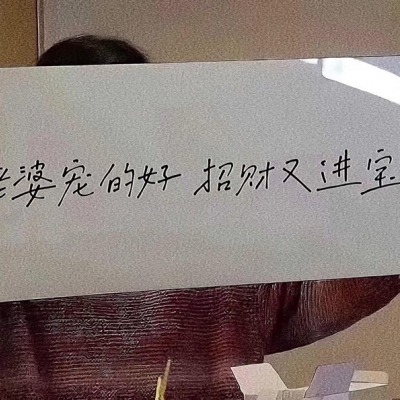 老婆宠的好 招财又进宝